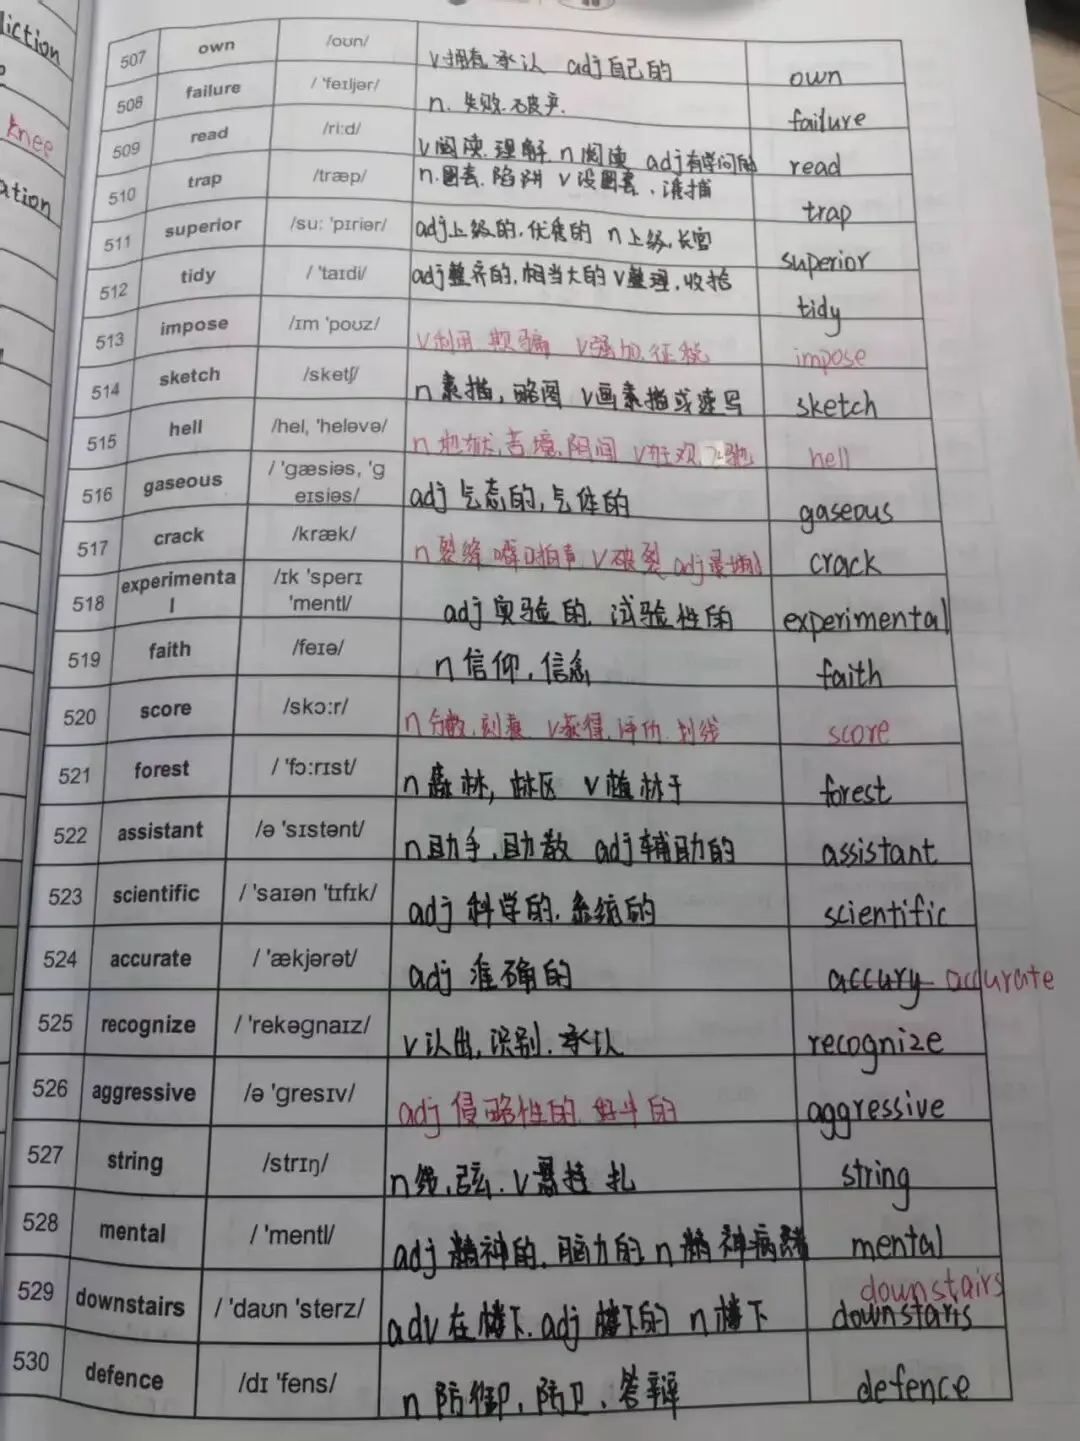 diction
knee
ation
507 own /oʊn/ v拥有,承认 adj自己的 own
508 failure / 'feɪljər/ n. 失败.破产. failure
509 read /ri:d/ v阅读.理解.n阅读 adj有学问的 read
510 trap /træp/ n.圈套.陷阱 v设圈套. trap
511 superior /su: 'pɪriər/ adj上级的.优秀的 n上级.长官 superior
512 tidy / 'taɪdi/ adj整齐的.相当大的 v整理.收拾 tidy
513 impose /ɪm 'poʊz/ v利用.欺骗 v强加.征税 impose
514 sketch /sketʃ/ n素描,略图 v画素描或速写 sketch
515 hell /hel, 'heləvə/ n地狱.苦境.阴间 v狂欢 飞驰 hell
516 gaseous / 'gæsiəs, 'g eɪsiəs/ adj气态的,气体的 gaseous
517 crack /kræk/ n裂缝 噼啪声 v破裂 adj最 crack
518 experimenta l /ɪk 'sperɪ 'mentl/ adj实验的.试验性的 experimental
519 faith /feɪə/ n信仰.信念 faith
520 score /skɔ:r/ n分数.刻痕 v获得.评估.划线 score
521 forest / 'fɔ:rɪst/ n森林,林区 v植林于 forest
522 assistant /ə 'sɪstənt/ n助手.助教 adj辅助的 assistant
523 scientific / 'saɪən 'tɪfɪk/ adj科学的.系统的 scientific
524 accurate / 'ækjərət/ adj 准确的 accury accurate
525 recognize / 'rekəgnaɪz/ v认出,识别.承认 recognize
526 aggressive /ə 'gresɪv/ adj 侵略性的.好斗的 aggressive
527 string /strɪŋ/ n线.弦.v悬挂 扎 string
528 mental / 'mentl/ adj精神的.脑力的 n精神病 mental
downstairs
529 downstairs / 'daʊn 'sterz/ adv在楼下.adj楼下的 n楼下 downstarts
530 defence /dɪ 'fens/ n防御,防卫.答辩 defence